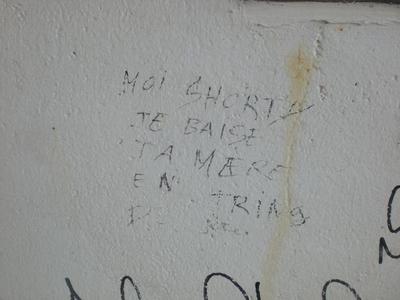 MOI SHORTY
JE BAISE
TA MÈRE
EN TRING